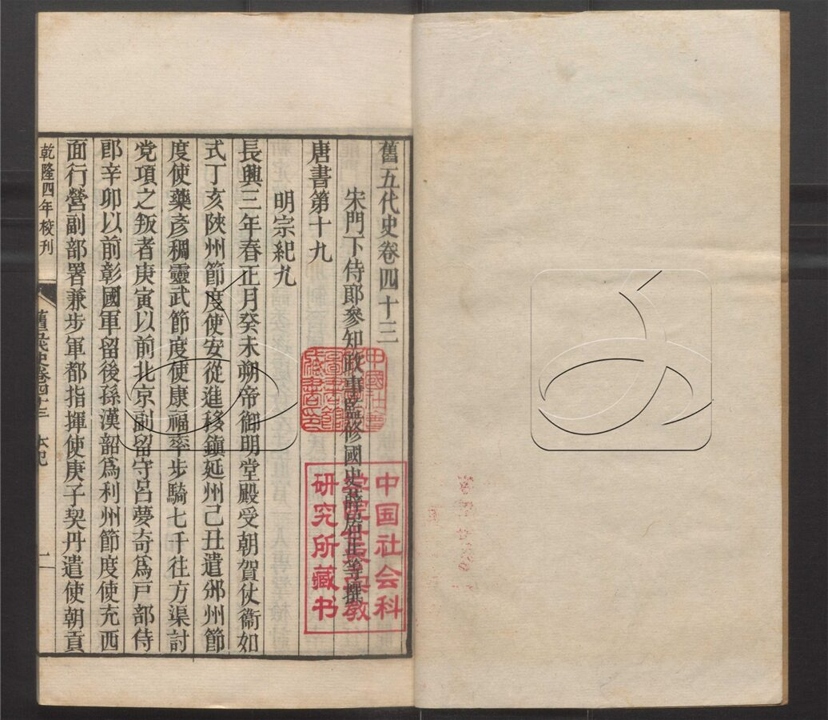 舊五代史卷四十三
宋門下侍郎參知政事監修國史薛居正等撰
唐書第十九
明宗紀九
長興三年春正月癸未朔帝御明堂殿受朝賀仗衞如
式丁亥陝州節度使安從進移鎮延州己丑遣邠州節
度使藥彥稠靈武節度使康福率步騎七千往方渠討
党項之叛者庚寅以前北京副留守呂夢奇爲戸部侍
郎辛卯以前彰國軍留後孫漢韶爲利州節度使充西
面行營副部署兼步軍都指揮使庚子契丹遣使朝貢
乾隆四年校刊
舊五代史卷四十三 本紀 一
中国社会科
学院
研究所藏书